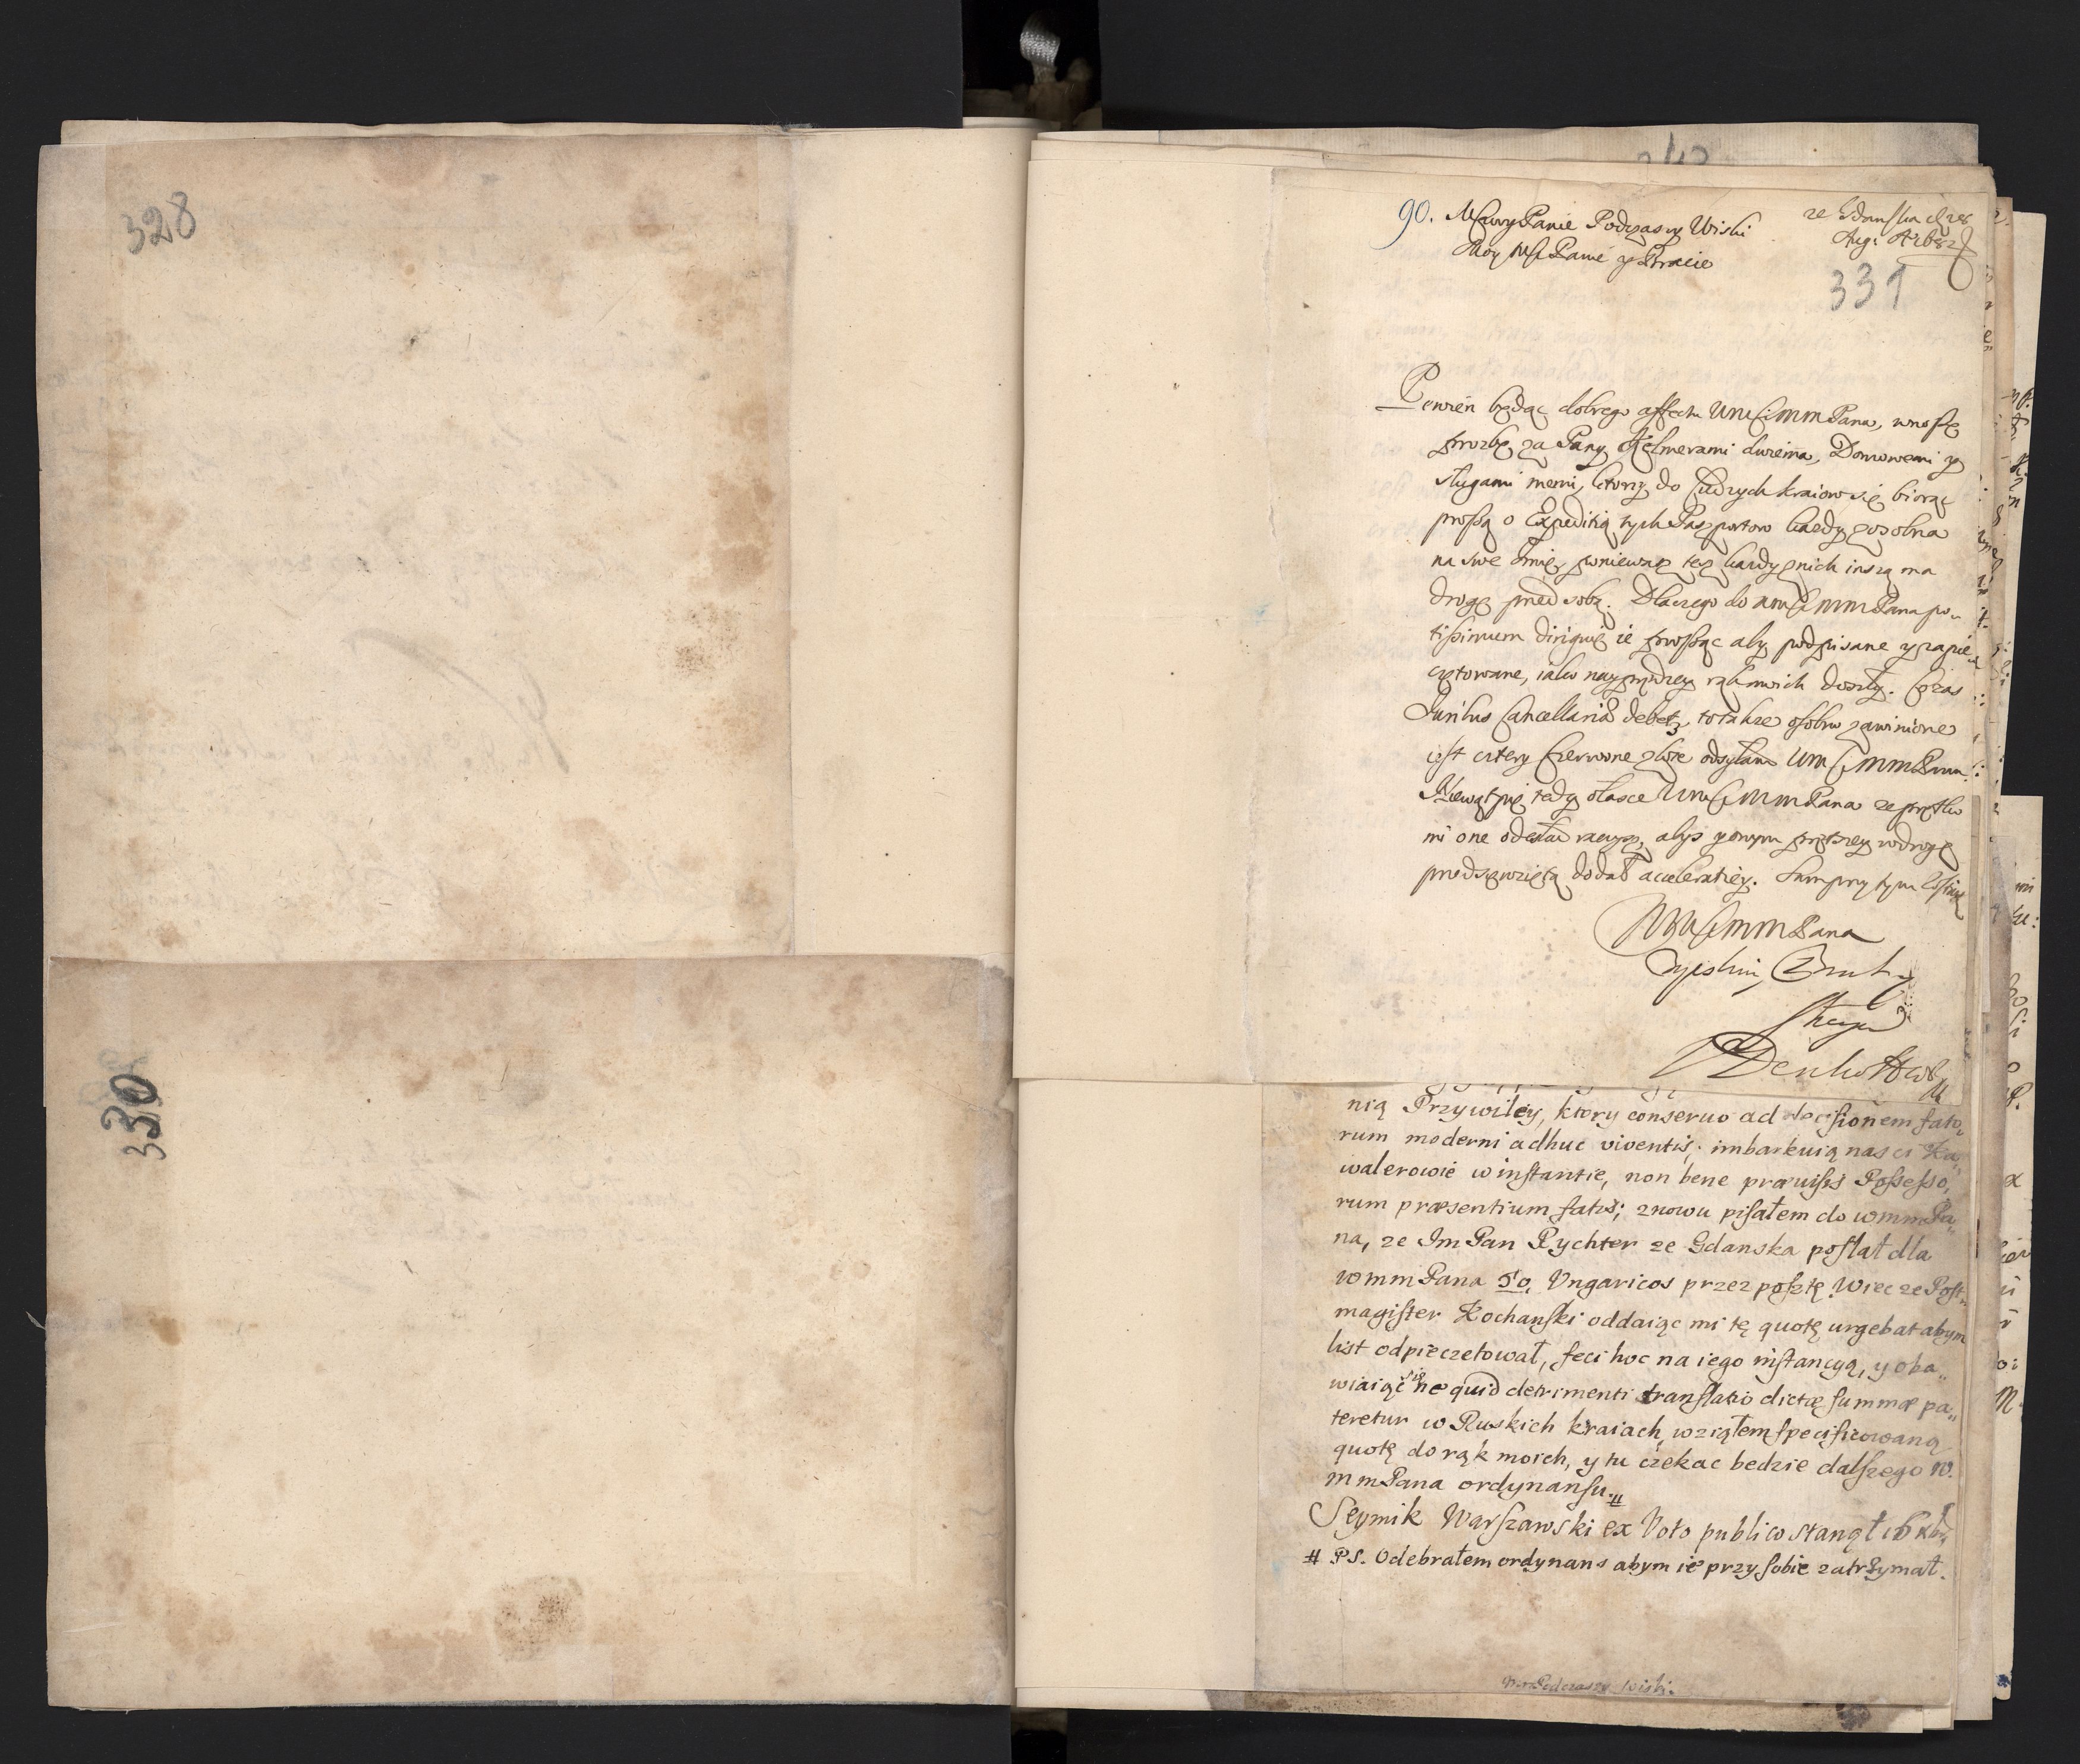 328
330
90. MCiwy Panie Podczaszy Wiski
Moy MPanie y Bracie
ze Gdanska d 28
Aug: A 1682
331
Pewien będąc dobrego affectu WmCimmPana, wnoszę
prozbę za Pany Helmerami dwiema, Domowemi y
sługami memi, ktorzy do Cudzych kraiow się biorąc
proszą o Expeditią tych Paszportow kazdy zosobna
na swe Imię, poniewasz tesz kazdy znich inszą ma
drogę przed sobą. Dlaczego do WmCimmPana po„
tissimum diriguię ie prosząc aby podpisane y zapie„
czętowane, iako nayprędzey rąk moich doszły. Czas
Juribus Cancellariæ debet, to takze osobno zawinione
iest cztery Czerwone złote odsyłam WmCimmPanu.
Niewątpię tedy o łasce WmCimmPana ze prętko
mi one odesłać raczysz, abys y onym prętszey w drogę
przedsięwziętą dodał acceleratiey. Sam przy tym
WmCimmPana
Zyczliwy Brat y
sługa
Denhoff
nią Przywiley, ktory conseruo ad decisionem fato„
rum moderni adhuc viventis; imbarkuią nas ci Ka„
walerowie w instantie, non bene prævisis Possesso„
rum præsentium fatis; znowu pisałem do wmmPa„
na, ze Im Pan Rychter ze Gdanska posłał dla
wmmPana 50, Vngaricos przez posztę. Wiec ze Post„
magister Kochanski oddaiąc mi tę quotę urgebat abym
list odpieczetował, feci hoc na iego instancyą, y oba„
wiaiąc się ne quid detrimenti translatio dictæ summæ pa„
teretur w Ruskich kraiach, wziąłem specificowaną
quotę do rąk moich, y tu czekac bedzie dalszego w.
mmPana ordynansu. #
Seymik Warszawski ex Voto publico stanął
# PS. Odebrałem ordynans abym ie przy sobie zatrzymał.
Podczaszy Wiski.